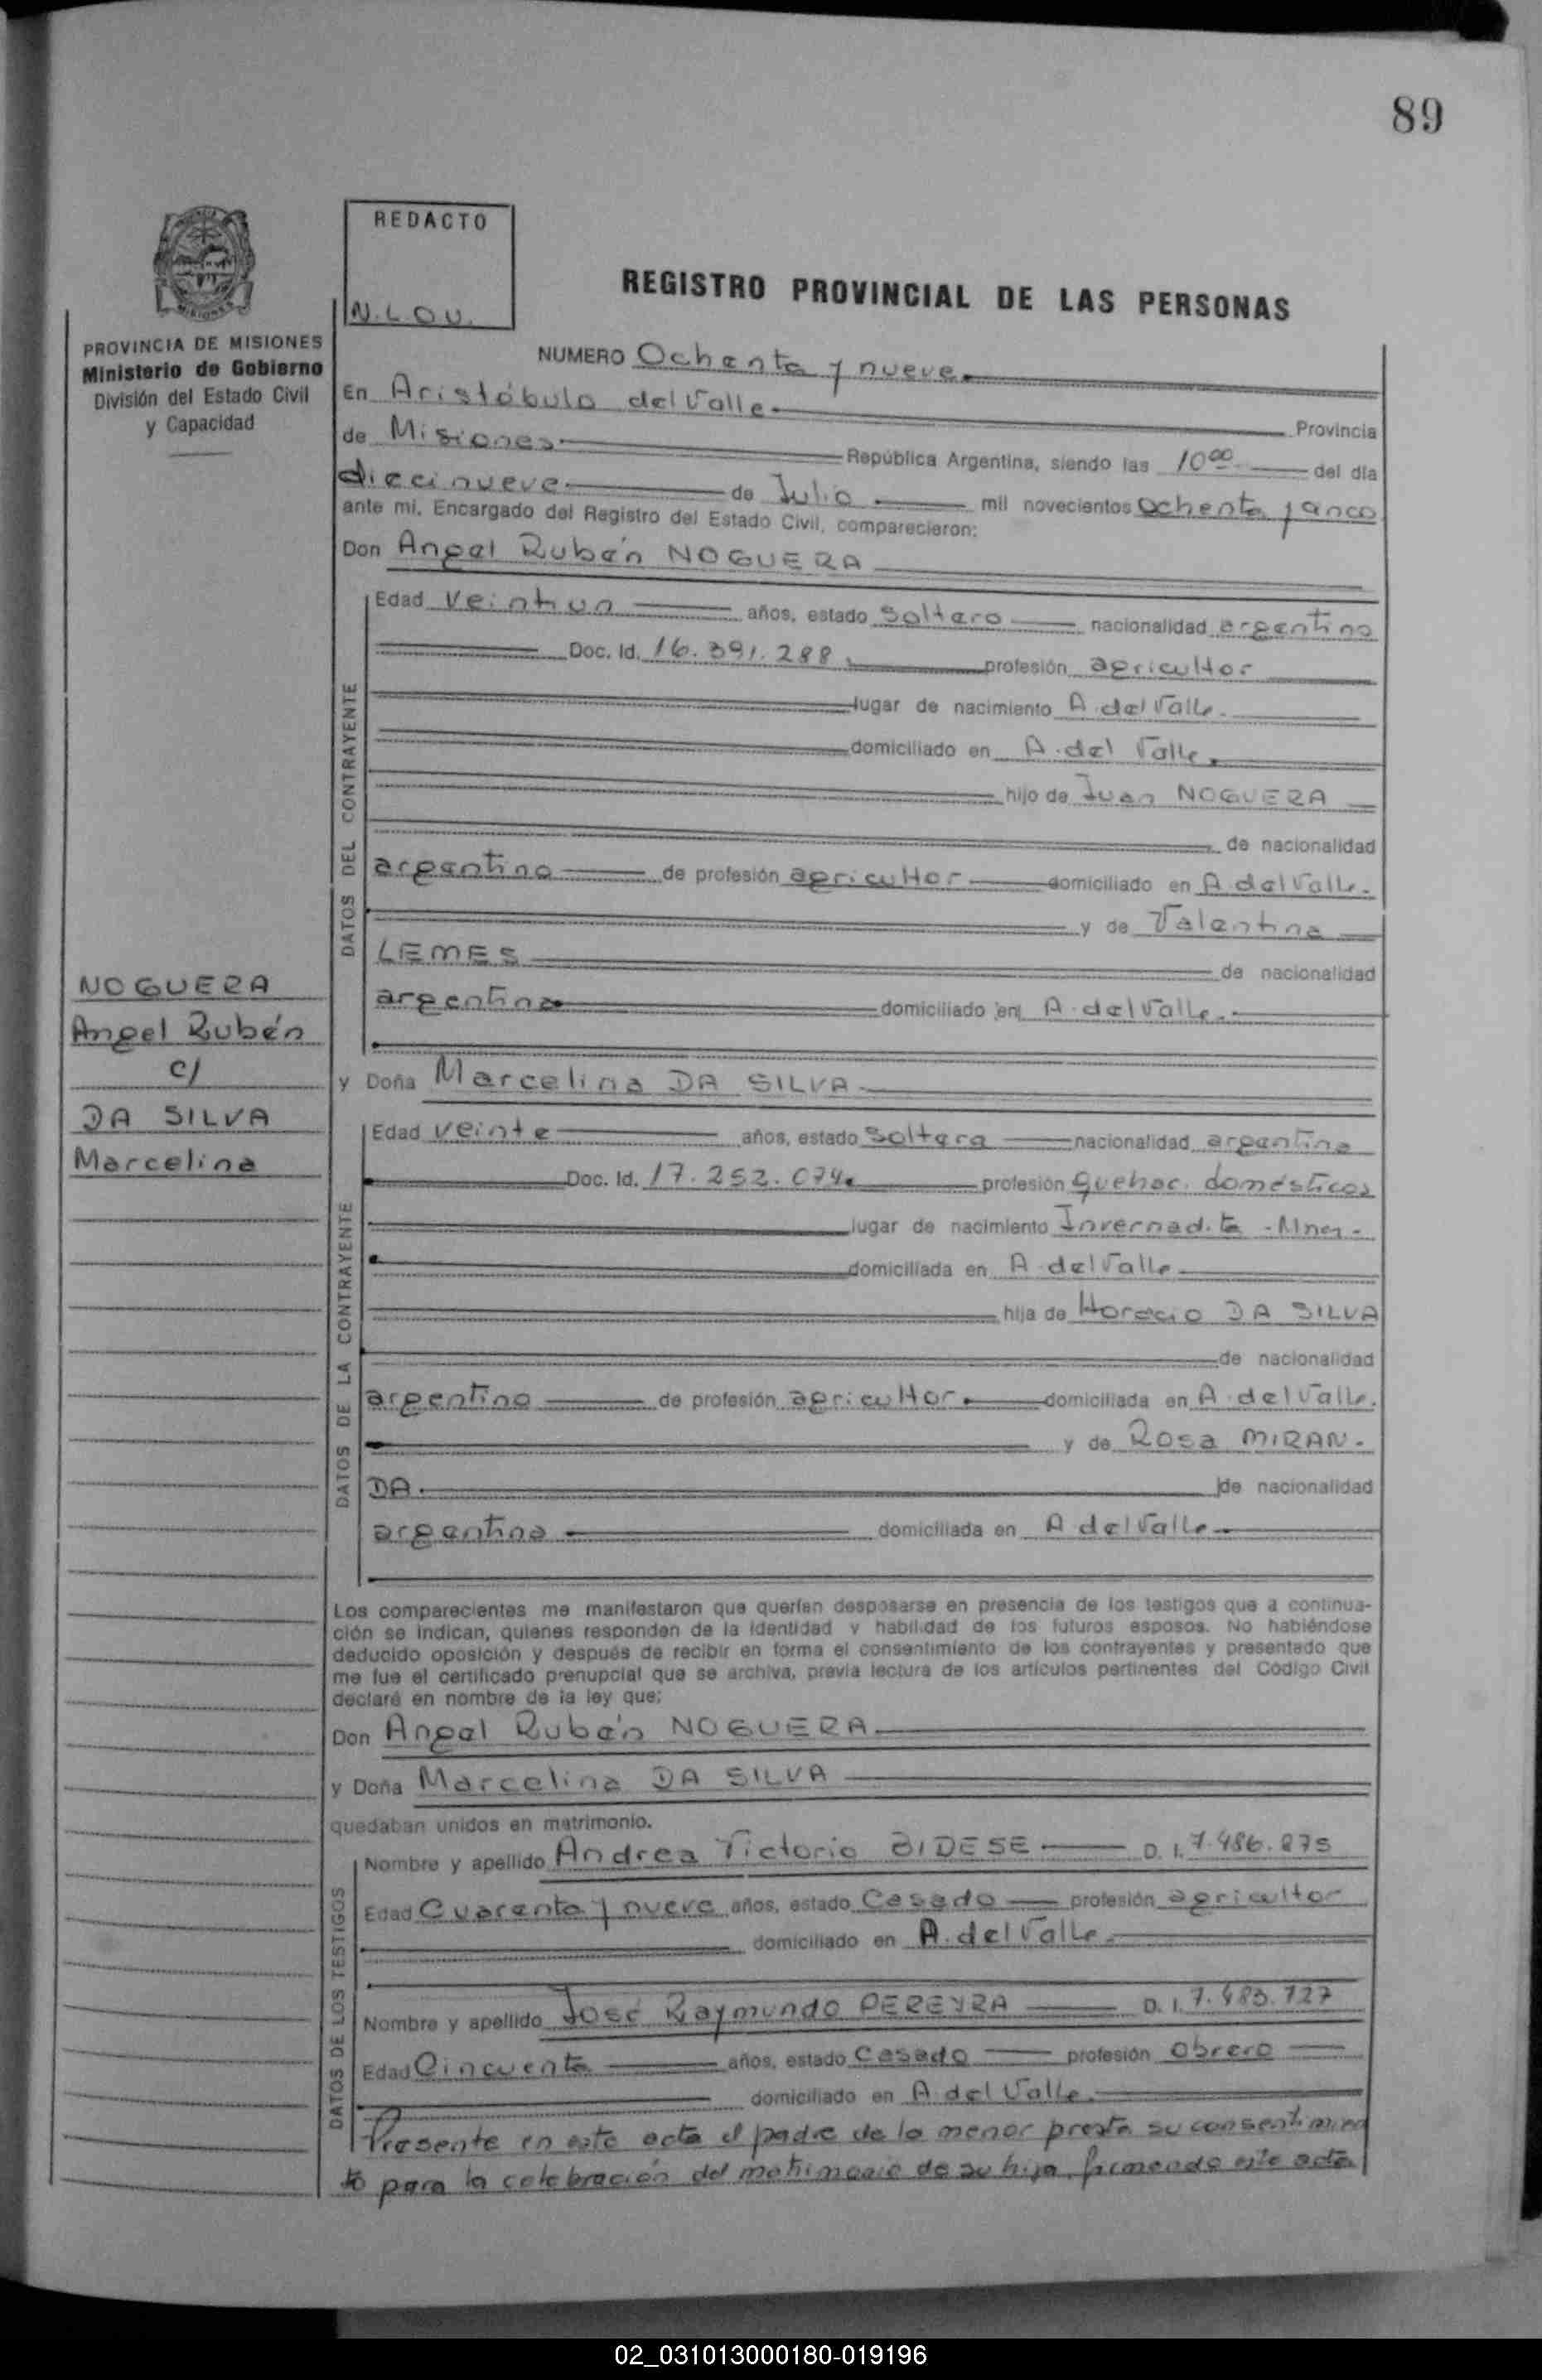 89
REDACTO
N.LOV.
REGISTRO PROVINCIAL DE LAS PERSONAS
PROVINCIA DE MISIONES
Ministerio de Gobierno
División del Estado Civil
y Capacidad
NUMERO Ochenta y nueve
En Aristóbulo del Valle Provincia
de Misiones República Argentina, siendo las 10⁰⁰ del día
diecinueve de Julio mil novecientos ochenta y cinco
ante mi, Encargado del Registro del Estado Civil, comparecieron:
Don Angel Rubén NOGUERA
DATOS DEL CONTRAYENTE
Edad veintiun años, estado soltero nacionalidad argentino
Doc. Id. 16.391.288 profesión agricultor
lugar de nacimiento A. del Valle.
domiciliado en A. del Valle
hijo de Juan NOGUERA
de nacionalidad
argentino de profesión agricultor domiciliado en A. del Valle.
y de Valentina
LEMES de nacionalidad
argentina domiciliado en A. del Valle.
NOGUERA
Angel Rubén
c/
DA SILVA
Marcelina
y Doña Marcelina DA SILVA
DATOS DE LA CONTRAYENTE
Edad veinte años, estado soltera nacionalidad argentina
Doc. Id. 17.252.074 profesión quehac. domésticos
lugar de nacimiento Invernadita - Mnes -
domiciliada en A. del Valle
hija de Horacio DA SILVA
de nacionalidad
argentino de profesión agricultor. domiciliada en A. del Valle.
y de Rosa MIRAN-
DA. de nacionalidad
argentina domiciliada en A. del Valle
Los comparecientes me manifestaron que querían desposarse en presencia de los testigos que a continua-
ción se indican, quienes responden de la identidad y habilidad de los futuros esposos. No habiéndose
deducido oposición y después de recibir en forma el consentimiento de los contrayentes y presentado que
me fue el certificado prenupcial que se archiva, previa lectura de los artículos pertinentes del Código Civil
declaré en nombre de la ley que:
Don Angel Rubén NOGUERA
y Doña Marcelina DA SILVA
quedaban unidos en matrimonio.
DATOS DE LOS TESTIGOS
Nombre y apellido Andrea Victorio BIDESE D. I. 7.486.875
Edad Cuarenta y nueve años, estado Casado profesión agricultor
domiciliado en A. del Valle.
Nombre y apellido José Raymundo PEREYRA D. I. 7.483.727
Edad Cincuenta años, estado Casado profesión obrero
domiciliado en A. del Valle.
Presente en este acto el padre de la menor presta su consentimien
to para la celebración del matrimonio de su hija, firmando este acta
02_031013000180-019196